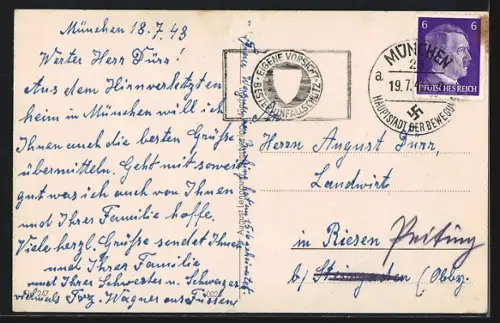 München 18.7.43
Werter Herr Dürr!
Aus dem Hirnverletzten
heim in München will ich
Ihnen auch die besten Grüße
übermitteln. Geht mit soweit
gut was ich auch von Ihnen
und Ihrer Familie hoffe.
Viele herzl. Grüße sendet Ihnen
und Ihrer Familie
und Ihrer Schwester u. Schwager
Wagner aus Füssen
EIGENE VORSICHT
BESTER UNFALLSCHUTZ
MÜNCHEN
a
19.7.4
HAUPTSTADT DER BEWEGUNG
6 6
DEUTSCHES REICH
Herrn August Dürr,
Landwirt
in Riesen Peiting
b/ Steingaden (Obby.